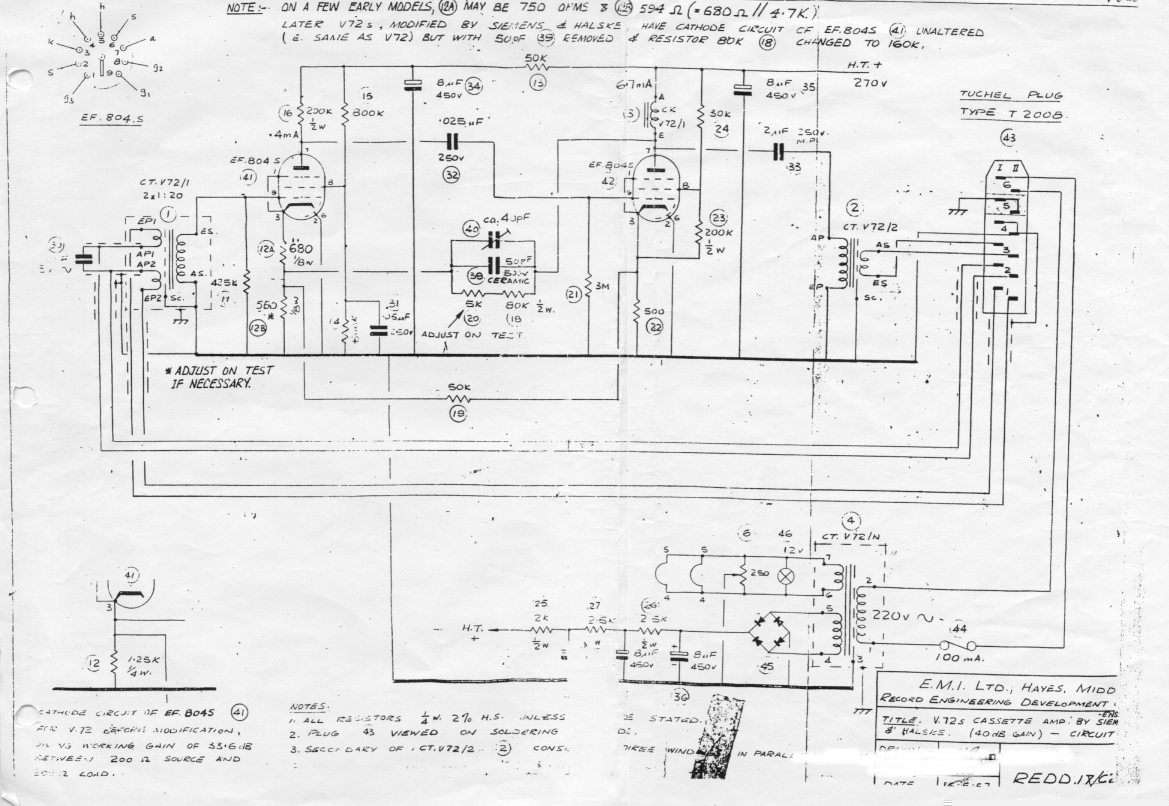 NOTE:- ON A FEW EARLY MODELS, (12A) MAY BE 750 OHMS & (12B) 594 Ω (= 680 Ω // 4.7K.)
LATER V72s, MODIFIED BY SIEMENS & HALSKE HAVE CATHODE CIRCUIT OF EF.804S (41) UNALTERED
(I.E. SAME AS V72) BUT WITH 50pF (39) REMOVED & RESISTOR 80K (18) CHANGED TO 160K.
h h
k s
s a
g3 g2
g1
EF.804.S
50K
(13)
H.T. +
270v
8µF
450v
(34)
6.7mA
8µF
450v
35
TUCHEL PLUG
TYPE T 2008.
(43)
I II
6
5
4
3
2
(16) 200K
½w
.4mA
15
800K
.025µF
250v
(32)
(3)
A
CK
V72/1
E
30K
24
2µF 250v
M.P.
33
EF.804S
(41)
7
8
9
3
2
6
EF.804S
42
7
8
9
3
2
6
CT.V72/1
2x1:20
(1)
EP1
AP1
AP2
EP2
Sc.
ES.
AS.
425K
11
(12A)
680
⅛w
560
*
(12B)
14
31
.05µF
250v
ca. 40pF
(40)
50pF
(39)
CERAMIC
5K
(20)
80K
(18)
½w.
ADJUST ON TEST
3M
(21)
(23)
200K
½w
500
(22)
(2)
CT.V72/2
AP
EP
AS
ES
Sc.
* ADJUST ON TEST
IF NECESSARY.
50K
(19)
(41)
3
(12)
1.25K
¼w.
6
46
12v
(4)
CT. V72/N
S S
4 4
250
7
6
5
4
2
3
220v ~
44
100 mA.
H.T.
+
25
2K
½w
27
2.5K
½w
(26)
2.5K
½w
8µF
450v
8µF
450v
(36)
45
CATHODE CIRCUIT OF EF.804S (41)
FOR V.72 BEFORE MODIFICATION,
WORKING GAIN OF 33.6 dB
BETWEEN 200 Ω SOURCE AND
Ω LOAD.
NOTES.
1. ALL RESISTORS ¼ W. 2% H.S. UNLESS STATED.
2. PLUG 43 VIEWED ON SOLDERING
3. SECONDARY OF CT.V72/2 (2) WIND IN PARAL
E.M.I. LTD., HAYES, MIDD
RECORD ENGINEERING DEVELOPMENT
TITLE. V.72s CASSETTE AMP. BY SIEM
& HALSKE. (40dB GAIN) — CIRCUIT
DATE
REDD.17/